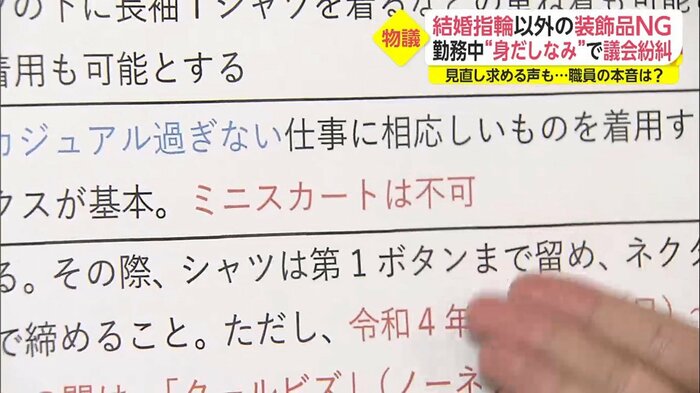 物議
結婚指輪以外の装飾品NG
勤務中“身だしなみ”で議会紛糾
見直し求める声も…職員の本音は?
の下に長袖Tシャツを着るなどの重ね着も可能
着用も可能とする
カジュアル過ぎない仕事に相応しいものを着用す
クスが基本。ミニスカートは不可
る。その際、シャツは第1ボタンまで留め、ネクタ
で締めること。ただし、令和4年
の間は、「クールビズ」(ノーネ